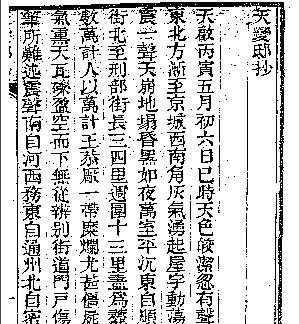 天變邸抄
天啟丙寅五月初六日巳時天色皎潔忽有聲
東北方漸至京城西南角灰氣湧起屋宇動蕩
震一聲天崩地塌昏黑如夜萬室平沉東自順
街北至刑部街長三四里週圍十三里盡為齏
數萬計人以萬計王恭厰一帶糜爛尤甚僵屍
氣熏天瓦礫盈空而下無從辨別街道門戶傷
筆所難述震聲南自河西務東自通州北自密